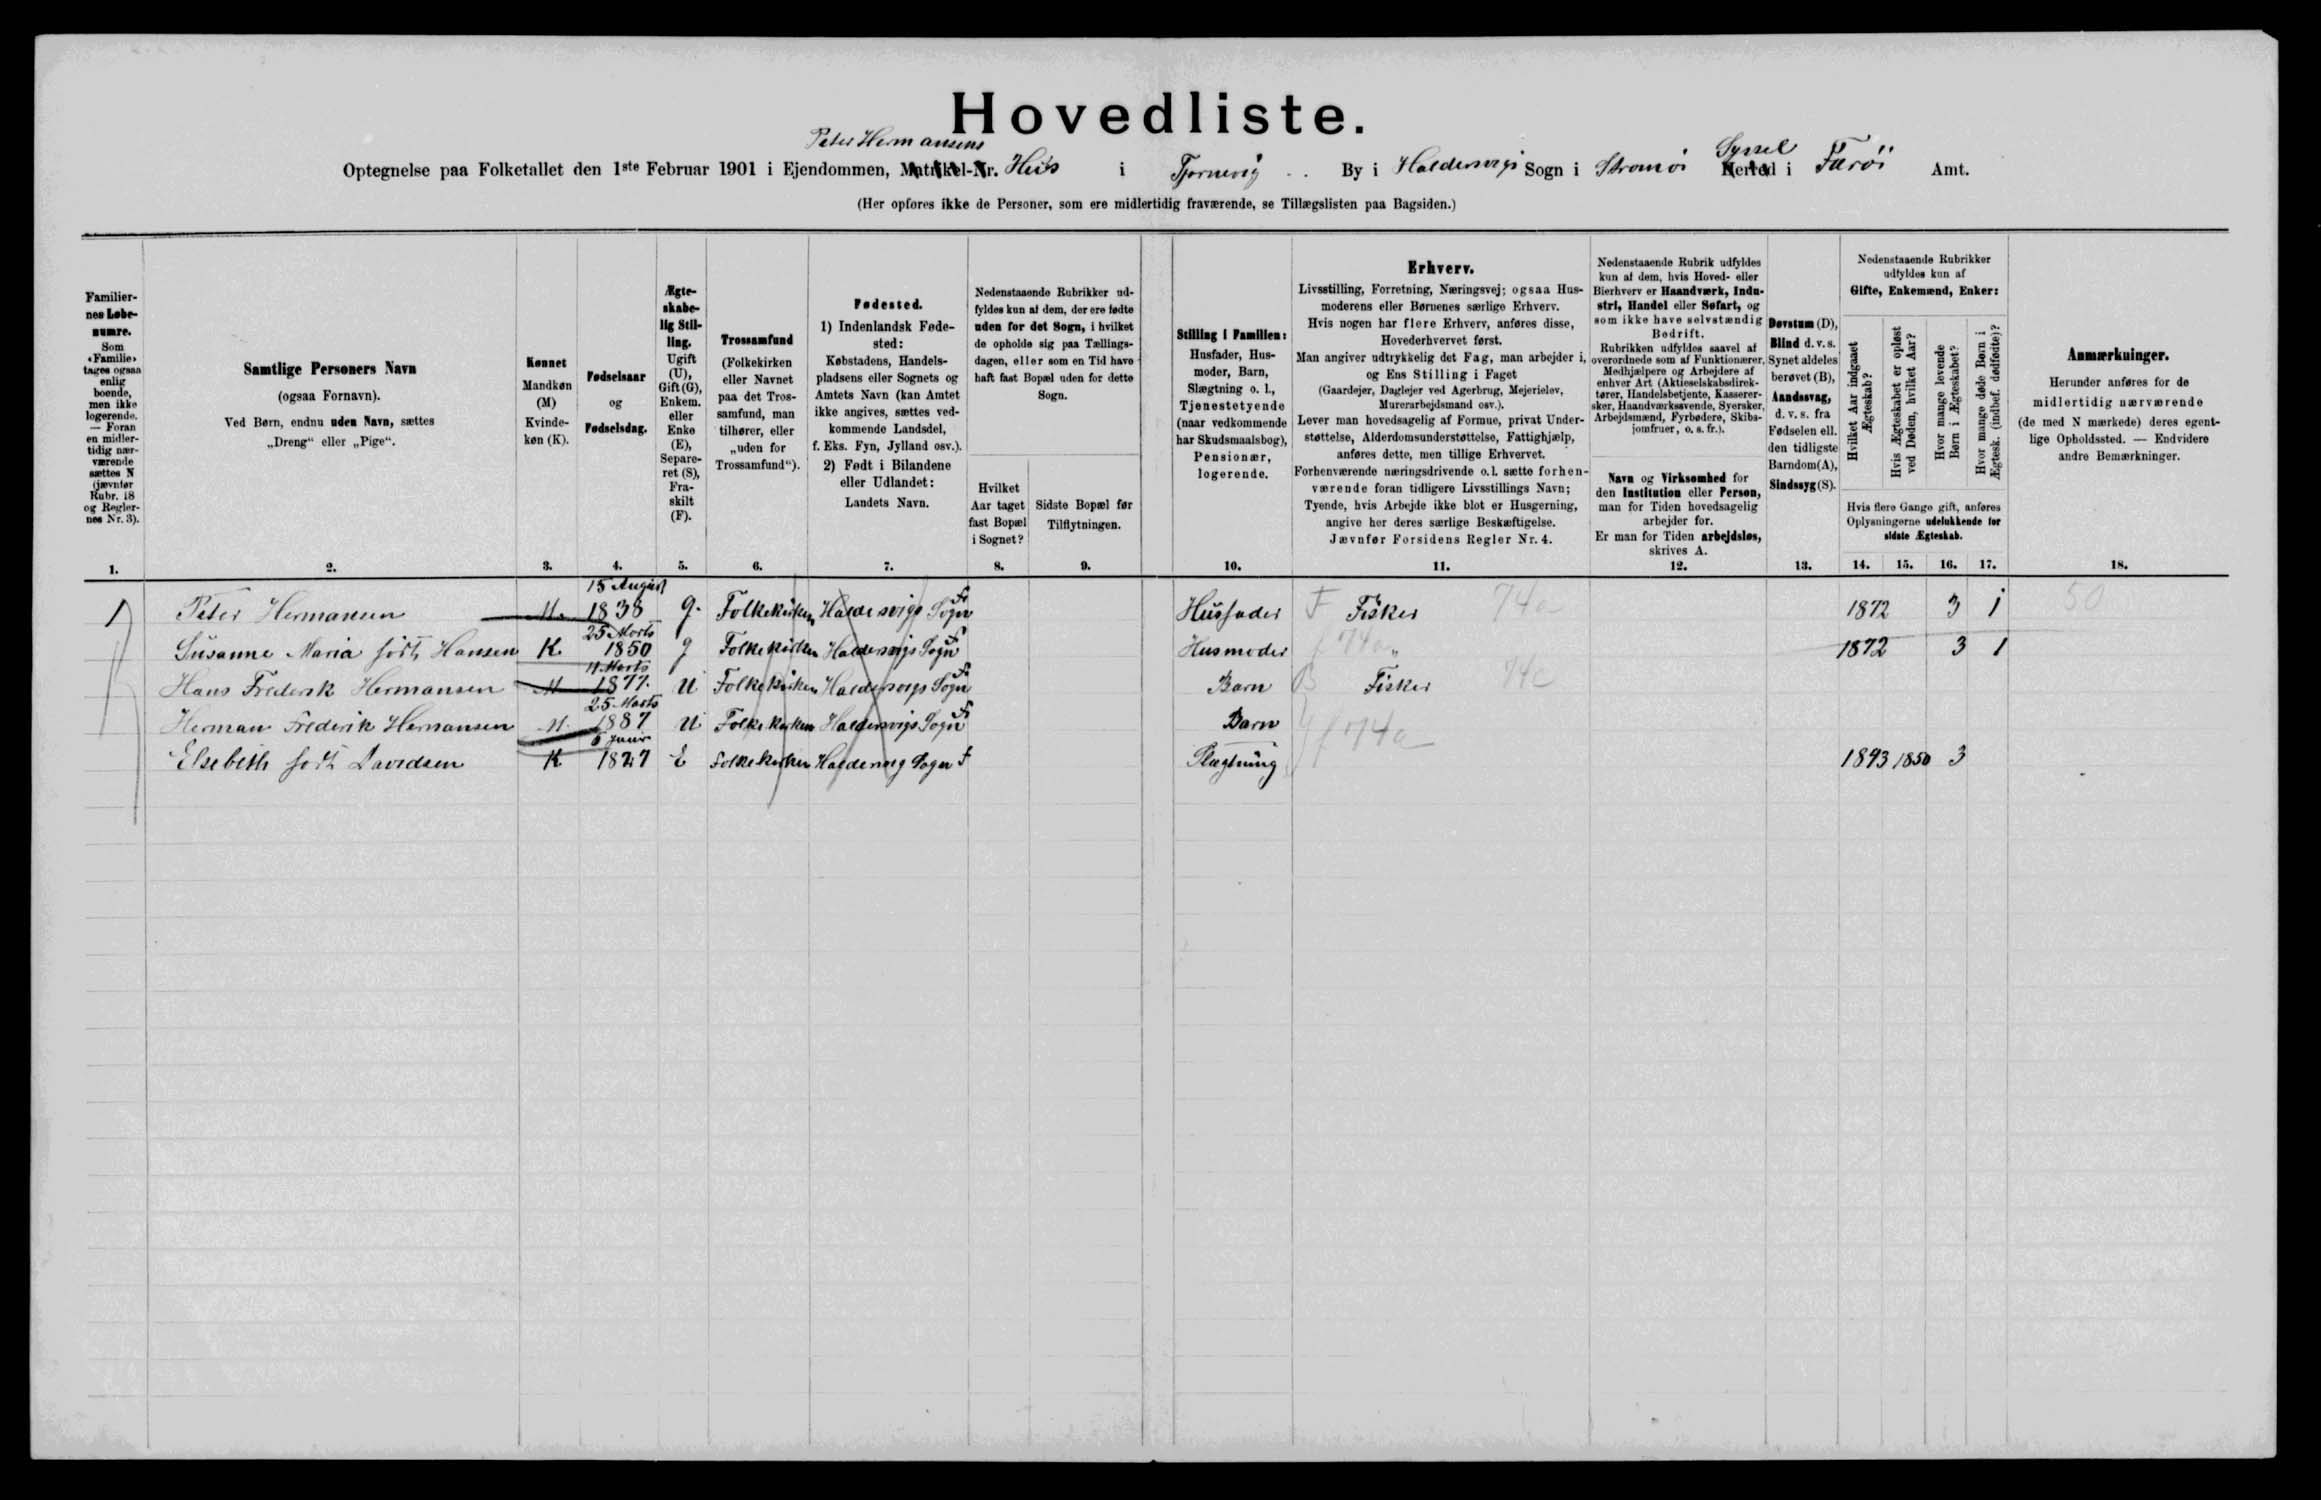 Hovedliste.
Peter Hermansens
Optegnelse paa Folketallet den 1ste Februar 1901 i Ejendommen, Matrikel-Nr. Huus i Tjornevig By i Haldersvigs Sogn i Stromöi Herred i Færöi Amt.
Syssel
(Her opføres ikke de Personer, som ere midlertidig fraværende, se Tillægslisten paa Bagsiden.)
Familier-
nes Løbe-
numre.
Som
«Familie»
tages ogsaa
enlig
boende,
men ikke
logerende.
— Foran
en midler-
tidig nær-
værende
sættes N
(jævnfør
Rubr. 18
og Regler-
nes Nr. 3).
1.
Samtlige Personers Navn
(ogsaa Fornavn).
Ved Børn, endnu uden Navn, sættes
„Dreng“ eller „Pige“.
2.
Kønnet
Mandkøn
(M)
Kvinde-
køn (K).
3.
Fødselsaar
og
Fødselsdag.
4.
Ægte-
skabe-
lig Stil-
ling.
Ugift
(U),
Gift (G),
Enkem.
eller
Enke
(E),
Separe-
ret (S),
Fra-
skilt
(F).
5.
Trossamfund
(Folkekirken
eller Navnet
paa det Tros-
samfund, man
tilhører, eller
„uden for
Trossamfund“).
6.
Fødested.
1) Indenlandsk Føde-
sted:
Købstadens, Handels-
pladsens eller Sognets og
Amtets Navn (kan Amtet
ikke angives, sættes ved-
kommende Landsdel,
f. Eks. Fyn, Jylland osv.).
2) Født i Bilandene
eller Udlandet:
Landets Navn.
7.
Nedenstaaende Rubrikker ud-
fyldes kun af dem, der ere fødte
uden for det Sogn, i hvilket
de opholde sig paa Tællings-
dagen, eller som en Tid have
haft fast Bopæl uden for dette
Sogn.
Hvilket
Aar taget
fast Bopæl
i Sognet?
8.
Sidste Bopæl før
Tilflytningen.
9.
Stilling i Familien:
Husfader, Hus-
moder, Barn,
Slægtning o. l.,
Tjenestetyende
(naar vedkommende
har Skudsmaalsbog),
Pensionær,
logerende.
10.
Erhverv.
Livsstilling, Forretning, Næringsvej; ogsaa Hus-
moderens eller Børnenes særlige Erhverv.
Hvis nogen har flere Erhverv, anføres disse,
Hovederhvervet først.
Man angiver udtrykkelig det Fag, man arbejder i,
og Ens Stilling i Faget
(Gaardejer, Daglejer ved Agerbrug, Mejerielev,
Murerarbejdsmand osv.).
Lever man hovedsagelig af Formue, privat Under-
støttelse, Alderdomsunderstøttelse, Fattighjælp,
anføres dette, men tillige Erhvervet.
Forhenværende næringsdrivende o. l. sætte forhen-
værende foran tidligere Livsstillings Navn;
Tyende, hvis Arbejde ikke blot er Husgerning,
angive her deres særlige Beskæftigelse.
Jævnfør Forsidens Regler Nr. 4.
11.
Nedenstaaende Rubrik udfyldes
kun af dem, hvis Hoved- eller
Bierhverv er Haandværk, Indu-
stri, Handel eller Søfart, og
som ikke have selvstændig
Bedrift.
Rubrikken udfyldes saavel af
overordnede som af Funktionærer,
Medhjælpere og Arbejdere af
enhver Art (Aktieselskabsdirek-
tører, Handelsbetjente, Kasserer-
sker, Haandværkssvende, Syersker,
Arbejdsmænd, Fyrbødere, Skibs-
jomfruer, o. s. fr.).
Navn og Virksomhed for
den Institution eller Person,
man for Tiden hovedsagelig
arbejder for.
Er man for Tiden arbejdsløs,
skrives A.
12.
Døvstum (D),
Blind d. v. s.
Synet aldeles
berøvet (B),
Aandssvag,
d. v. s. fra
Fødselen ell.
den tidligste
Barndom (A),
Sindssyg (S).
13.
Nedenstaaende Rubrikker
udfyldes kun af
Gifte, Enkemænd, Enker:
Hvilket Aar indgaaet
Ægteskab?
Hvis Ægteskabet er opløst
ved Døden, hvilket Aar?
Hvor mange levende
Børn i Ægteskabet?
Hvor mange døde Børn i
Ægtesk. (indbef. dødfødte)?
Hvis flere Gange gift, anføres
Oplysningerne udelukkende for
sidste Ægteskab.
14. 15. 16. 17.
Anmærkninger.
Herunder anføres for de
midlertidig nærværende
(de med N mærkede) deres egent-
lige Opholdssted. — Endvidere
andre Bemærkninger.
18.
15 August
1 Peter Hermansen M. 1838 g. Folkekirken Haldersvigs Sogn Husfader F Fisker 74a 1872 3 1 50
25 Marts
Susanne Maria födt Hansen K 1850 g Folkekirken Haldersvigs Sogn Husmoder f 74a „ 1872 3 1
11 Marts
Hans Frederik Hermansen M 1877. U Folkekirken Haldersvigs Sogn Barn B Fisker 74c
25 Marts
Herman Frederik Hermansen M. 1887 U Folkekirken Haldersvigs Sogn Barn f 74a
6 Juni
Elsebeth födt Davidsen K 1827 E Folkekirken Haldersvig Sogn Slægtning 1843 1850 3